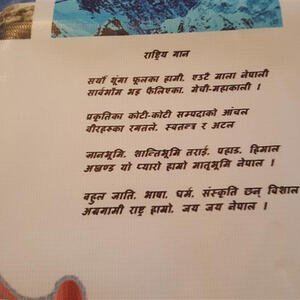 राष्ट्रिय गान
सयौं थूंगा फूलका हामी, एउटै माला नेपाली
सार्वभौम भइ फैलिएका, मेची-महाकाली ।
प्रकृतिका कोटी-कोटी सम्पदाको आंचल
वीरहरूका रगतले, स्वतन्त्र र अटल
ज्ञानभूमि, शान्तिभूमि तराई, पहाड, हिमाल
अखण्ड यो प्यारो हाम्रो मातृभूमि नेपाल ।
बहुल जाति, भाषा, धर्म, संस्कृति छन् विशाल
अग्रगामी राष्ट्र हाम्रो, जय जय नेपाल ।